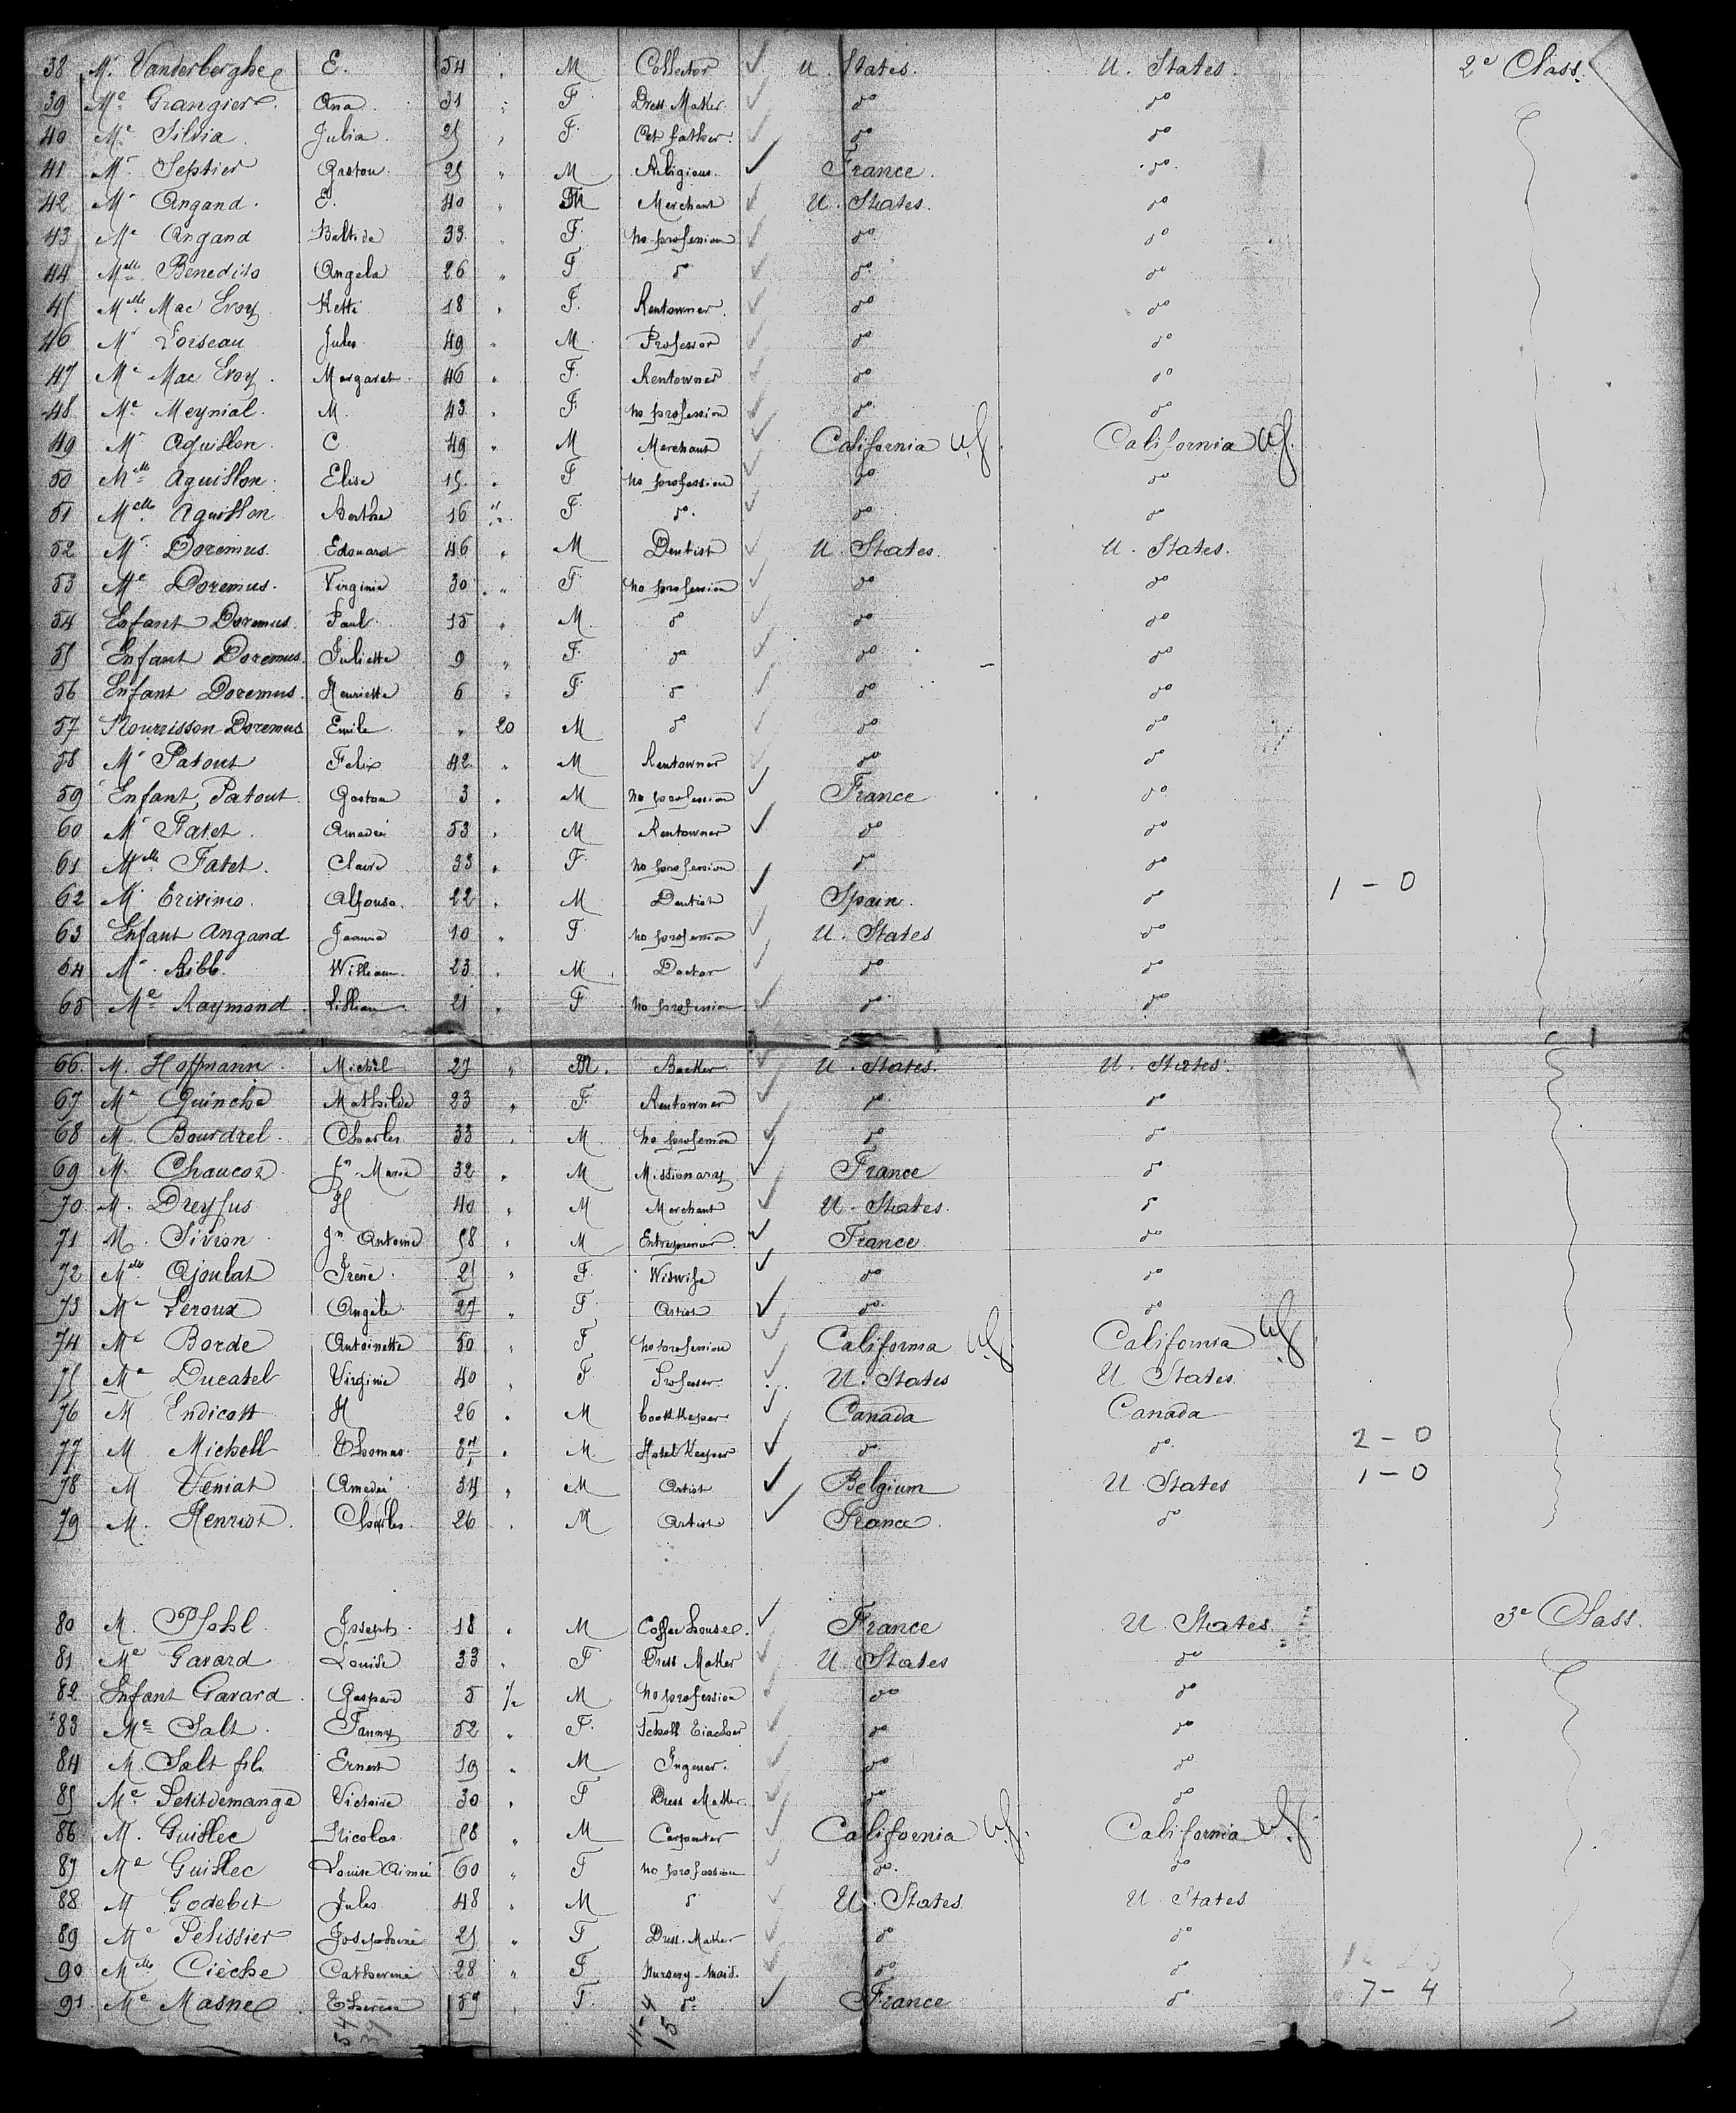 38 Mr Vanderberghe E. 54 " M Collector U. States. U. States. 2e Class.
39 Me Grangier Ana 31 " F Dress Maker do do
40 Me Silvia Julia 25 " F do do
41 Mr Septier Gaston 25 " M Religious France. do
42 Mr Angand. E. 40 " M Merchant U. States. do
43 Me Angand 33 " F. no profession do do
44 Melle Benedito Angela 26 " F do do do
45 Melle Mac Evoy Ketti 18 " F. Rentowner. do do
46 Mr Loiseau Jules 49 " M Professor do do
47 Me Mac Evoy. Margaret 46 " F. Rentowner do do
48 Me Meynial. M. 43 " F. no profession do do
49 Mr Aguillon. C. 49 " M Merchant California California
50 Melle Aguillon. Elise 15 " F no profession do do
51 Melle Aguillon Berthe 16 F. do do do
52 Mr Doremus. Edouard 46 " M Dentist U. States. U. States.
53 Me Doremus. Virginie 30 " F no profession do do
54 Enfant Doremus. Paul 15 " M. do do do
55 Enfant Doremus. Juliette 9 " F. do do do
56 Enfant Doremus. Henriette 6 " F do do do
57 Nourrisson Doremus Emile " 20 M do do do
58 Mr Patout Felix 42 " M Rentowner do do
59 Enfant Patout Gaston 3 " M no profession France do
60 Mr Amedée 53 " M Rentowner do do
61 Melle Fatet. Claire 33 " F. no profession do do
62 Mr Alfonso. 22 " M Dentist Spain. do 1 - 0
63 Enfant Angand Jeanne 10 " F no profession U. States do
64 Mr Bibb. William 23 " M Doctor do do
65 Me Raymond Lillian 21 " F no profession do do
66 M. Hoffmann Michel 27 " M. Backer U. States. U. States.
67 Me Quinche Mathilde 23 " F. Rentowner do do
68 M. Bourdrel. Charles 33 " M no profession do do
69 M. Jn Marie 32 " M Missionary France do
70 M. Dreyfus H 40 " M Merchant U. States. do
71 M. Sivion Jn Antoine 58 " M Entrepreneur France do
72 Melle Ajoulat Irene. 25 " F. Widwife do do
73 Me Leroux Angèle 27 " F Artist do do
74 Me Borde Antoinette 50 " F no profession California California
75 Me Ducatel Virginie 40 " F Professor U. States U States.
76 M Endicott H 26 " M Bookkeeper Canada Canada
77 M Michell Thomas " M Hotel Keeper do do 2 - 0
78 M Veniat Amedée 34 " M Artist Belgium U States 1 - 0
79 M. Henriot. Charles 26 " M Artist France. do
80 M. Pfohl Joseph 18 " M Coffee house. France U. States 3e Class.
81 Me Gavard Louise 33 " F Dress Maker U. States do
82 Enfant Gavard Gaspard 5 1/2 M no profession do do
83 Me Salt Fanny 52 " F. Scholl Eiacher do do
84 M. Salt fils Ernest 19 " M Ingener. do do
85 Me Petitdemange Victoire 30 " F Dress Maker do do
86 M. Guillec Nicolas 58 " M Carpenter California California
87 Me Guillec Louise Aimée 60 " F no profession do do
88 M Godebit Jules 48 " M do U. States U States
89 Me Pelissier Josephine 25 " F Dress Maker do do
90 Melle Cièche Catherine 28 " F Nursery-maid. do do
91 Me Masne Thérèse " F. do France do 7 - 4
54 39 11-4 15